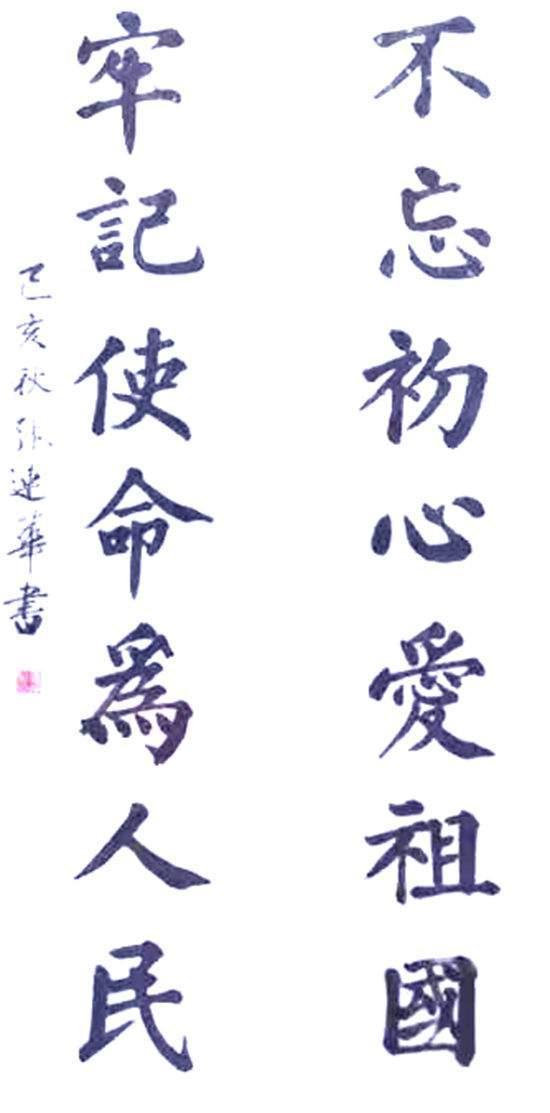 不忘初心愛祖國
牢記使命為人民
己亥秋張連華書